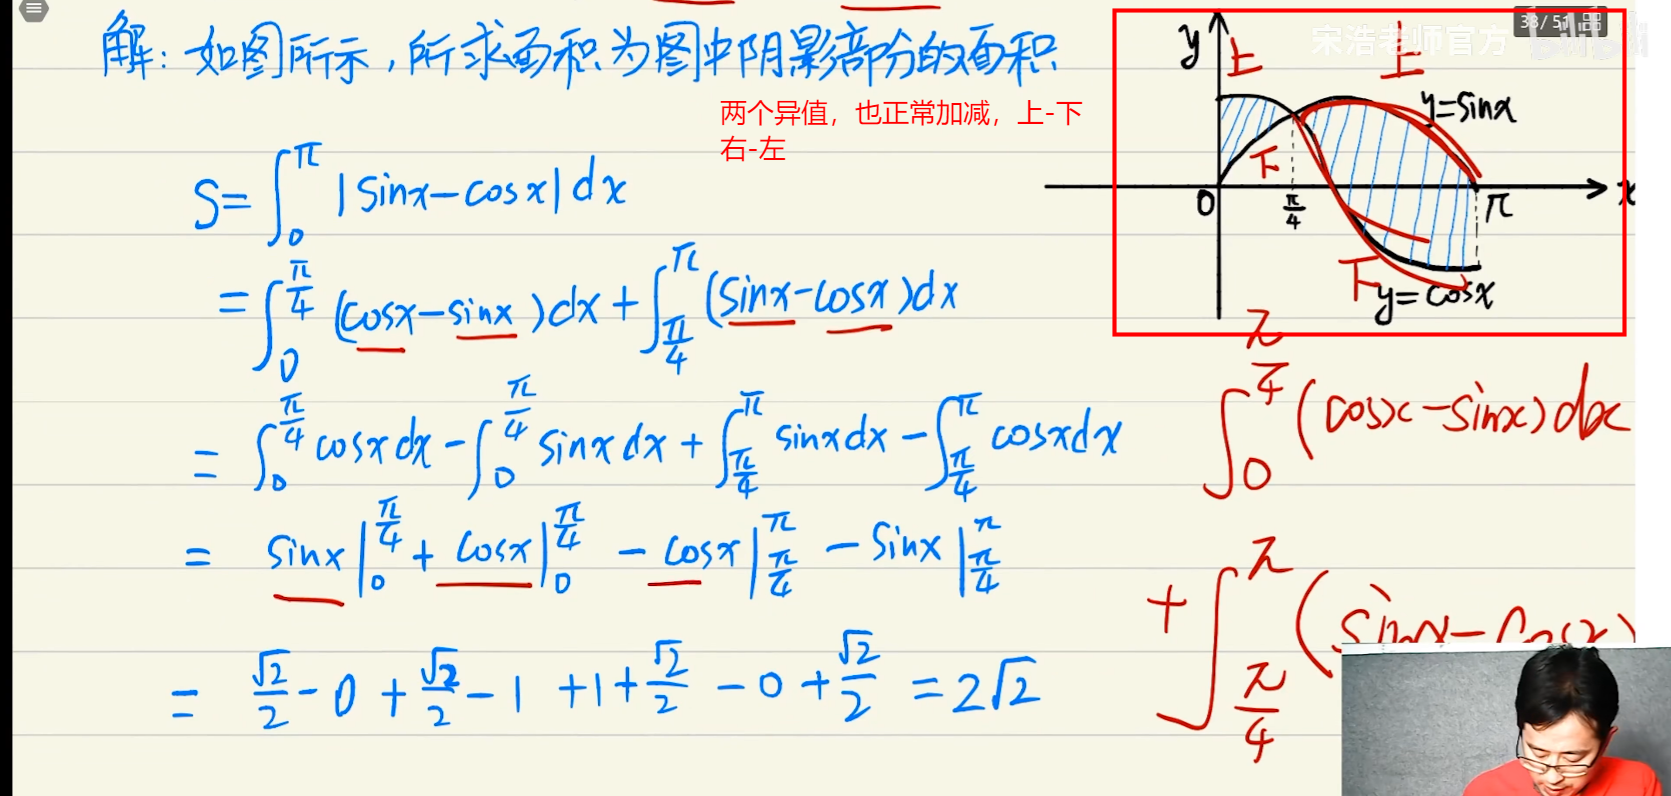 解：如图所示，所求面积为图中阴影部分的面积
两个异值，也正常加减，上-下
右-左
S=∫₀^π |sinx-cosx|dx
=∫₀^(π/4) (cosx-sinx)dx+∫_(π/4)^π (sinx-cosx)dx
=∫₀^(π/4) cosxdx-∫₀^(π/4) sinxdx+∫_(π/4)^π sinxdx-∫_(π/4)^π cosxdx
= sinx|₀^(π/4) + cosx|₀^(π/4) - cosx|_(π/4)^π - sinx|_(π/4)^π
= √2/2-0+√2/2-1+1+√2/2-0+√2/2=2√2
宋浩老师官方
bilibili
y
上
上
y=sinx
下
0
π/4
π
x
下
y=cosx
∫₀^(π/4) (cosx-sinx)dx
+∫_(π/4)^π (sinx-cosx)